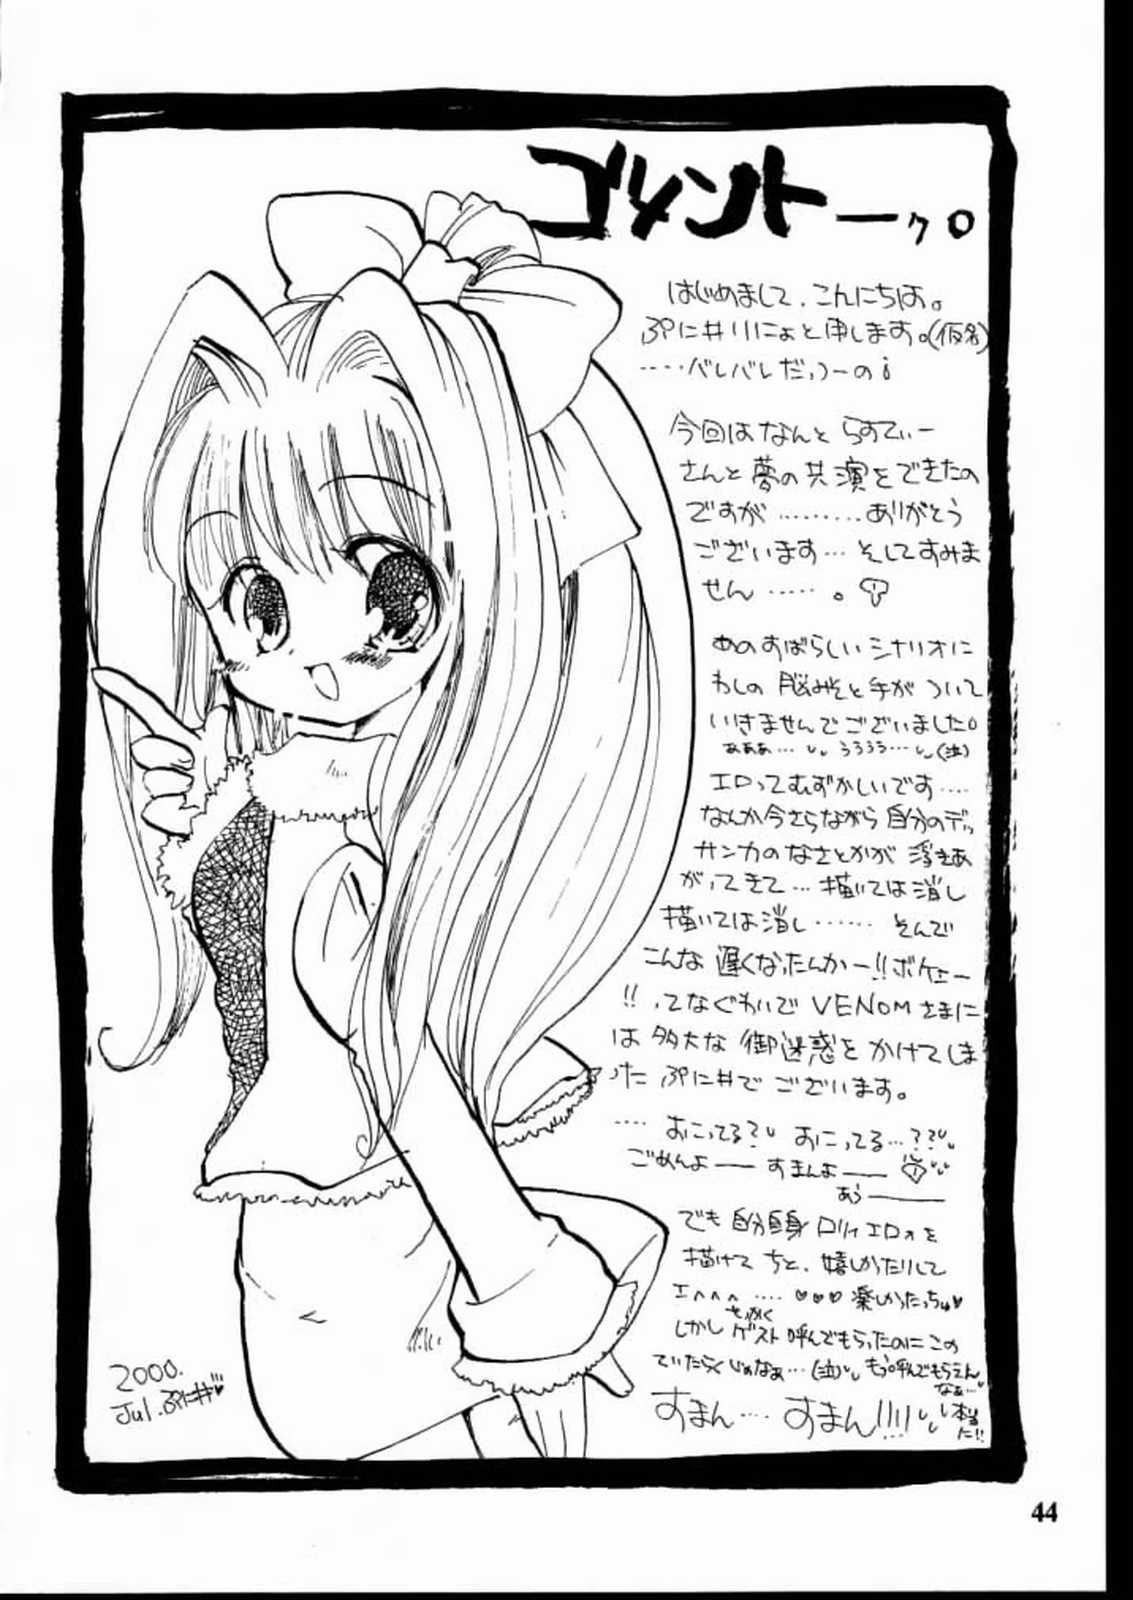 コメントーク。
はじめまして、こんにちは。
ぷに#りにょと申します。(仮名)
‥‥バレバレだっつーの¡
今回はなんと らすてぃー
さんと夢の共演をできたの
ですが ‥‥‥‥ ありがとう
ございます… そしてすみま
せん ‥‥‥ 。
あのすばらしいシナリオに
わしの 脳みそと手が ついて
いきませんでございました。
ああぁ… うううう… (泣)
エロってむずかしいです‥‥
なんか今さらながら自分のデッ
サンカのなさとかが 浮きあ
がってきて… 描いては消し
描いては消し ‥‥‥ そんで
こんな 遅くなったんかー!!ボケェー
!! ってなぐわいで VENOMさまに
は 多大な 御迷惑を かけてしま
った ぷに#で ございます。
‥‥ おこってる? おこってる…??
ごめんよ―― すまんよ――
あう――
でも 自分自身 ロリィエロォを
描けて ちと、嬉しかったりして
エヘヘヘ ‥‥ ♥♥♥ 楽しかったっちゅ♥
しかし せっかく ゲスト呼んでもらったのに この
ていたらくじゃなぁ…(泣) もう呼んでもらえん
なぁ…
すまん‥‥ すまん!!!!
2000.
Jul. ぷに#♥
44